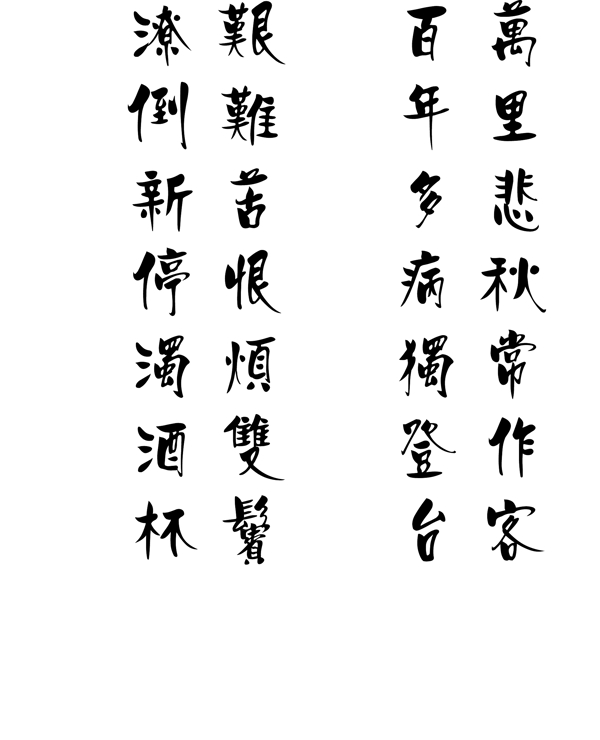 萬里悲秋常作客
百年多病獨登台
艱難苦恨煩雙鬢
潦倒新停濁酒杯